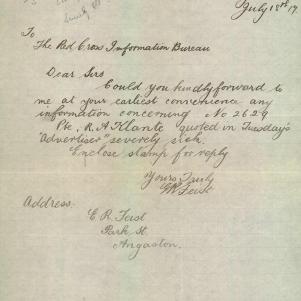 July 18th 17
To
The Red Cross Information Bureau
Dear Sirs
Could you kindly forward to
me at your earliest convenience any
information concerning No 2629
Pte. R. A Klante quoted in Tuesday's
"Advertiser" severely sick.
Enclose stamp for reply
Yours Truly
E R Feist
Address:
E. R. Feist
Park St.
Angaston.